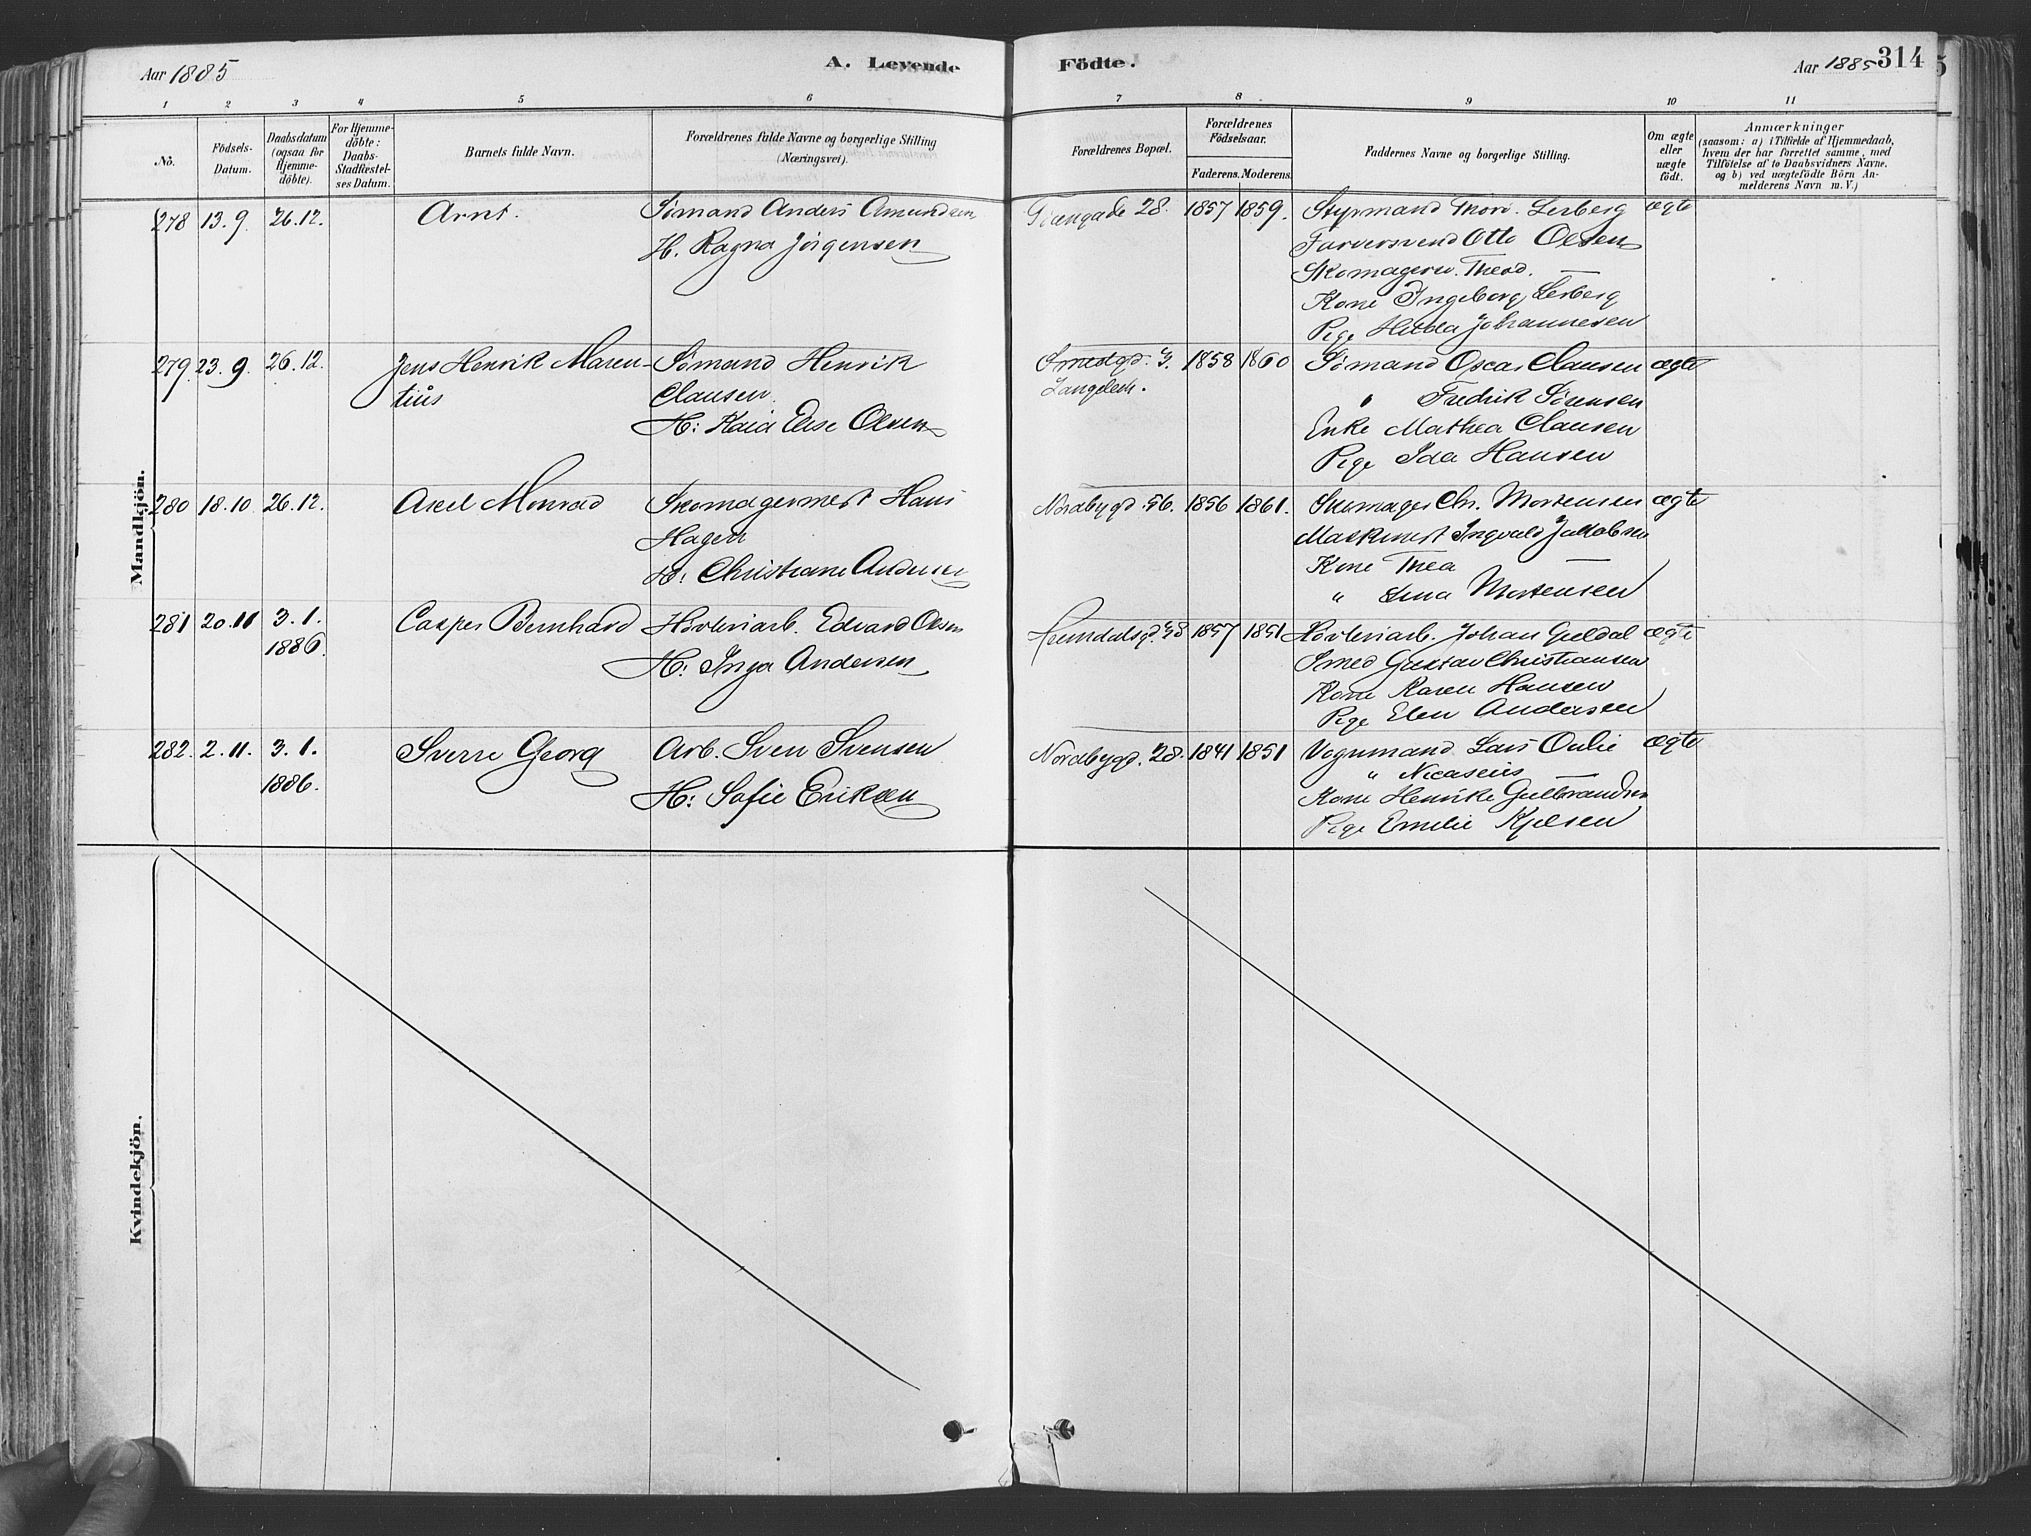 Aar 1885
A. Levende
Födte.
Aar 1885
314
1 2 3 4 5 6 7 8 9 10 11
No.
Födsels-
Datum.
Daabsdatum
(ogsaa for
Hjemme-
döbte).
For Hjemme-
döbte:
Daabs-
Stadfæstel-
ses Datum.
Barnets fulde Navn.
Forældrenes fulde Navne og borgerlige Stilling
(Næringsvei).
Forældrenes Bopæl.
Forældrenes
Födselsaar.
Faderens. Moderens.
Faddernes Navne og borgerlige Stilling.
Om ægte
eller
uægte
födt.
Anmærkninger
(saasom: a) i Tilfælde af Hjemmedaab,
hvem der har forrettet samme, med
Tilföielse af to Daabsvidners Navne,
og b) ved uægtefödte Börn An-
melderens Navn m. V.)
Mandkjön.
278 13.9. 26.12. Arnt. Sömand Anders Amundsen
H. Ragna Jörgensen
28. 1857 1859.
Styrmand Thorv. Lerberg
Farversvend Otto Olsen
Skomagersv. Theod. —
Kone Ingeborg Lerberg
Pige Hilda Johannesen
ægte
279. 23.9. 26.12. Jens Henrik Maren-
tius
Sömand Henrik
Clausen.
H: Kaia Elise Olsen
Smestgd. 3.
Langelech.
1858 1860
Sömand Oscar Clausen
" Fredrik Sörensen
Enke Mathea Clausen
Pige Ida Hansen
ægte
280 18.10. 26.12. Axel Monrad
Skomagermest Hans
Hagen
H: Christiane Andersen
Nordbygd. 56. 1856 1861.
Skomager Chr. Mortensen
Maskinist Ingvald Jakobsen
Kone Thea —
" Lina Mortensen
ægte
281 20.11 3.1.
1886.
Casper Bernhard
Hövleriarb. Edvard Olsen
H: Inga Andersen
1857 1851
Hövleriarb. Johan Guldal
Smed Gustav Christiansen
Kone Karen Hansen
Pige Elen Andersen
ægte
282. 2.11. 3.1.
1886.
Sverre Georg
Arb. Sven Svensen
H: Sofie Eriksen
Nordbygd. 28. 1841 1851
Vognmand Lars Oulie
" Nicaseius —
Kone Henrikke Gulbrandsen
Pige Emelie Kjelsen
ægte
Kvindekjön.